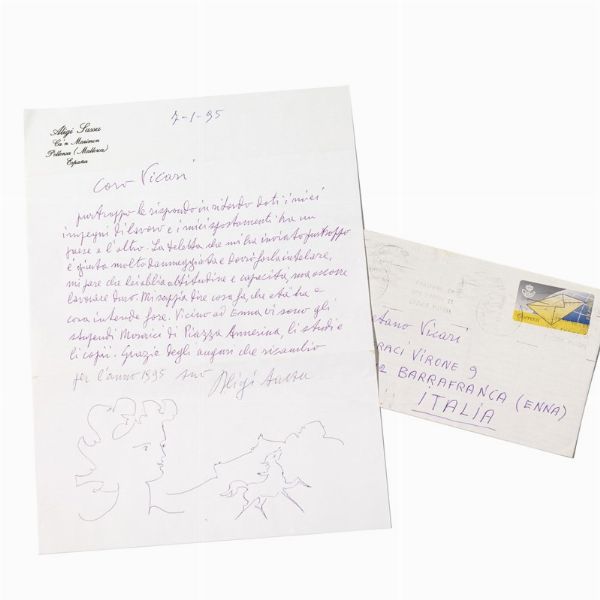 Aligi Sassu
Ca'n Marimon
Pollensa (Mallorca)
España
7-1-95
Caro Vicari
purtroppo le rispondo in ritardo dati i miei
impegni di lavoro e i miei spostamenti tra un
paese e l'altro. La teletta che mi ha inviato purtroppo
è giunta molto danneggiata e dovrò farla intelare,
mi pare che lei abbia attitudine e capacità, ma occorre
lavorare duro. Mi sappia dire cosa fa, che età ha e
cosa intende fare. Vicino ad Enna vi sono gli
stupendi Mosaici di Piazza Armerina, li studi e
li copii. Grazie degli auguri che ricambio
per l'anno 1995 suo Aligi Sassu
tano Vicari
RACI VIRONE 9
2 BARRAFRANCA (ENNA)
ITALIA